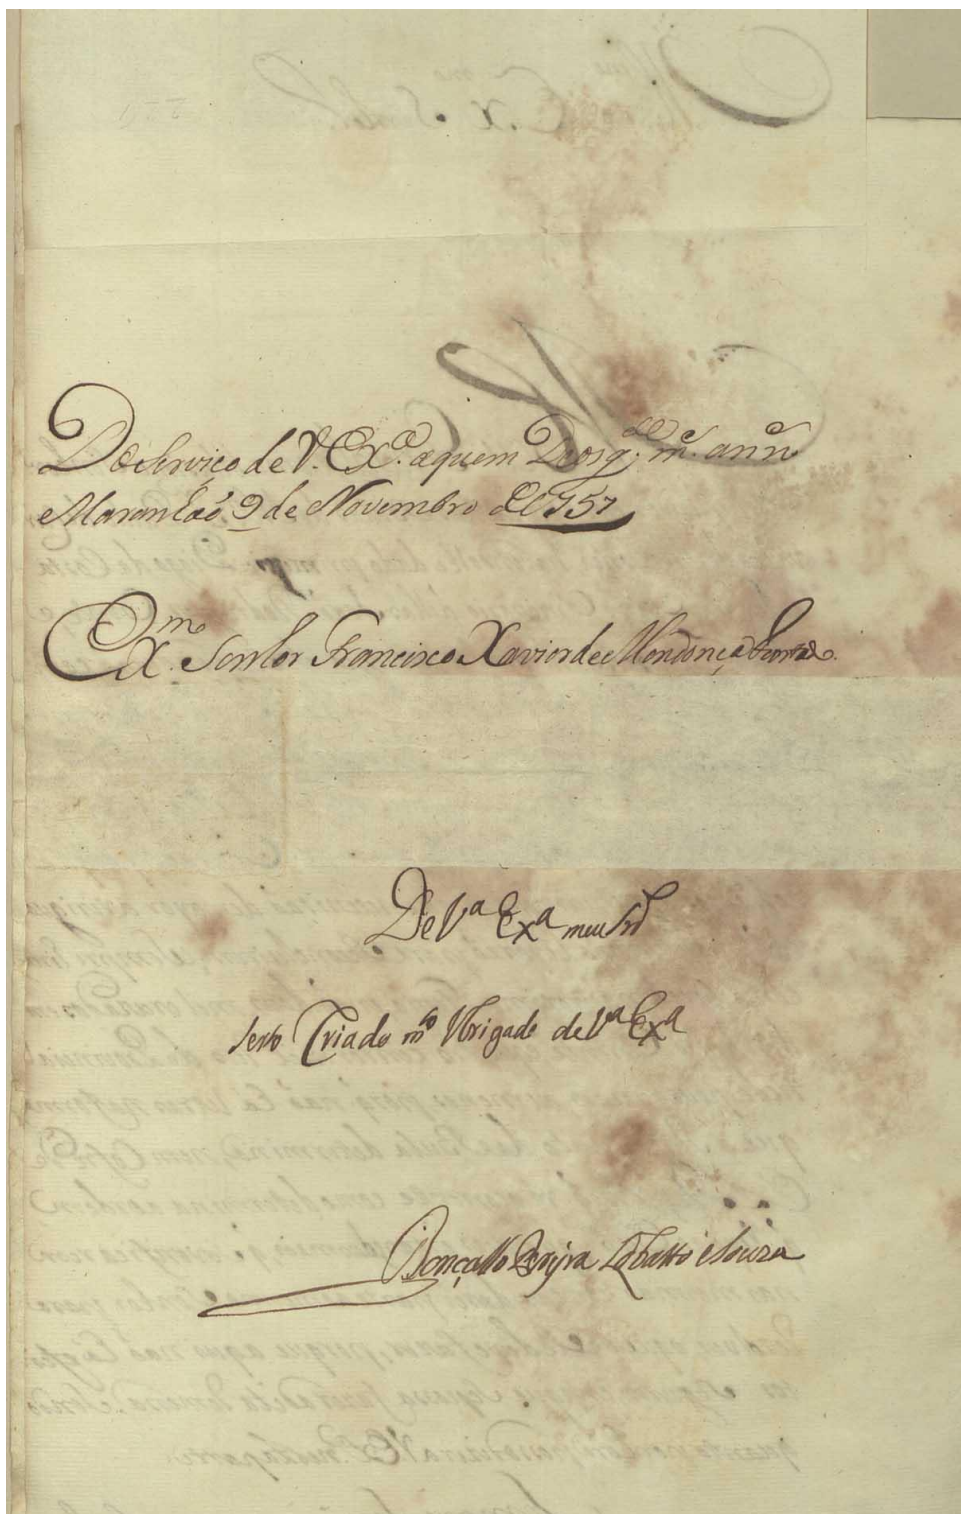 Do Serviço de V. Ex.ª aquem Deos g.de m.s ann.s
Maranhaõ 9 de Novembro de 1757
Ex.mo Senhor Francisco Xavier de Mendonça Furtado.
De V.ª Ex.ª meu S.r
Serto Criado m.to Obrigado de V.ª Ex.ª
Gonçallo Pereyra Lobatto e Souza